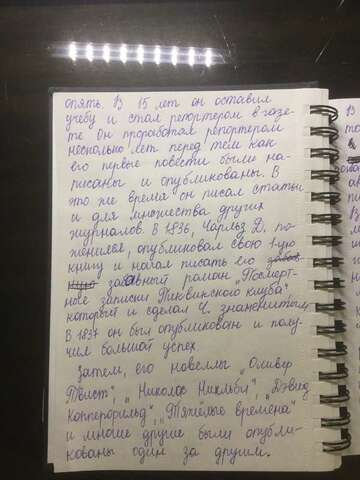 опять. В 15 лет он оставил
учебу и стал репортером в газе-
те. Он проработал репортером
несколько лет перед тем как
его первые повести были на-
писаны и опубликованы. В
это же время он писал статьи
и для множества других
журналов. В 1836, Чарльз Д. по-
женился, опубликовал свою 1-ую
книгу и начал писать его
забавной роман „Посмерт-
ные записки Пиквинского клуба"
который и сделал Ч. знаменитым
В 1837 он был опубликован и полу-
чил большой успех
Затем, его новеллы „Оливер
Твист", „Николос Никльби", „Дэвид
Копперфильд", „Тяжелые времена"
и многие другие были опубли-
кованы один за другим.